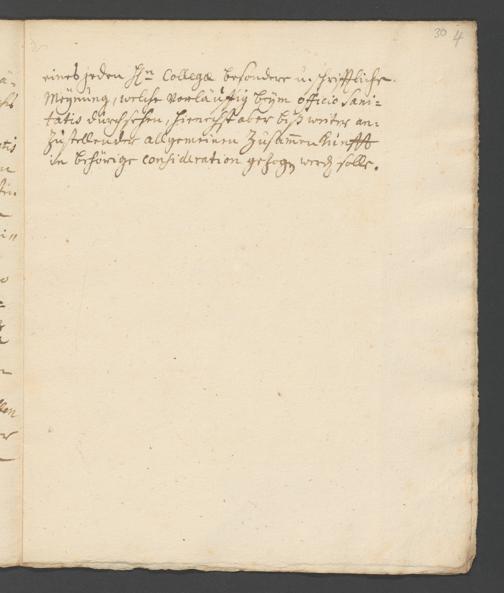 30 4
eines jeden Hn Collegæ besondere u. schrifftliche
Meynung, welche vorläuffig beym officio Sani-
tatis durchsehen, hiernechst aber biß weiter an-
zustellender allgemeinen Zusam̅enkunfft
in behörige consideration gezogen werden solle.